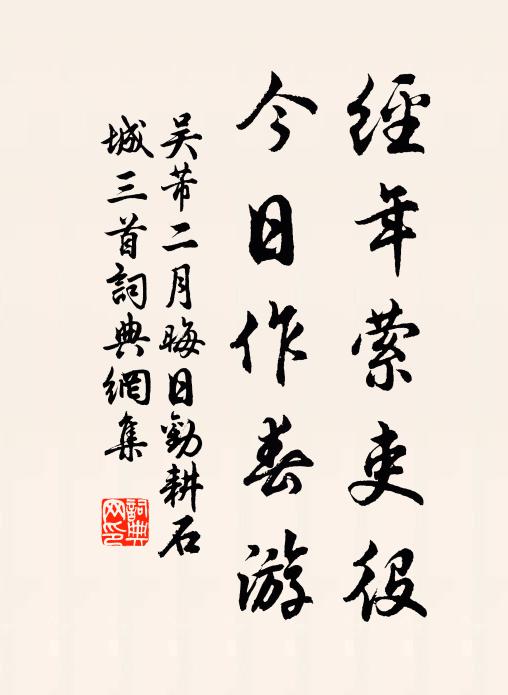 經年縈吏役
今日作春游
吴芾二月晦日勸耕石
城三首詞典網集
詞典
网印